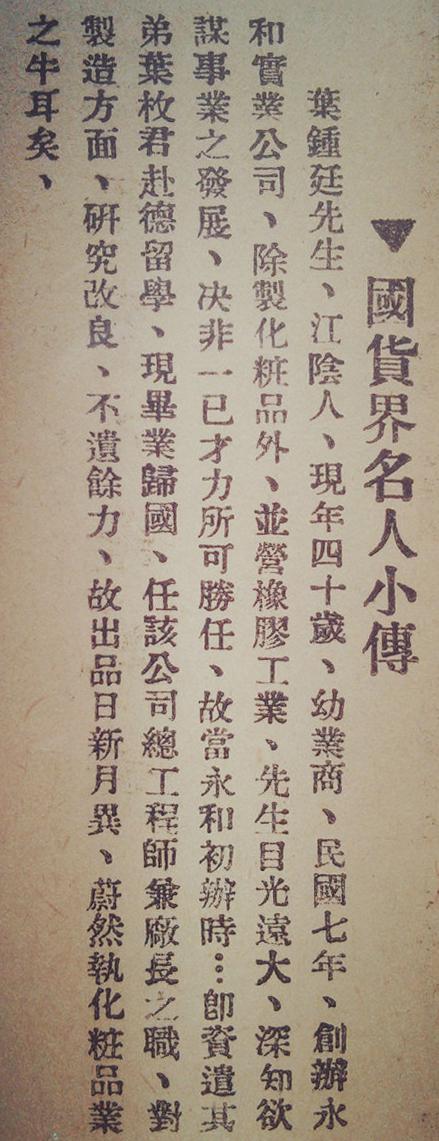 ▼國貨界名人小傳
葉鍾廷先生、江陰人、現年四十歲、幼業商、民國七年、創辦永
和實業公司、除製化粧品外、並營橡膠工業、先生目光遠大、深知欲
謀事業之發展、决非一已才力所可勝任、故當永和初辦時…卽資遣其
弟葉枚君赴德留學、現畢業歸國、任該公司總工程師兼廠長之職、對
製造方面、研究改良、不遺餘力、故出品日新月異、蔚然執化粧品業
之牛耳矣、